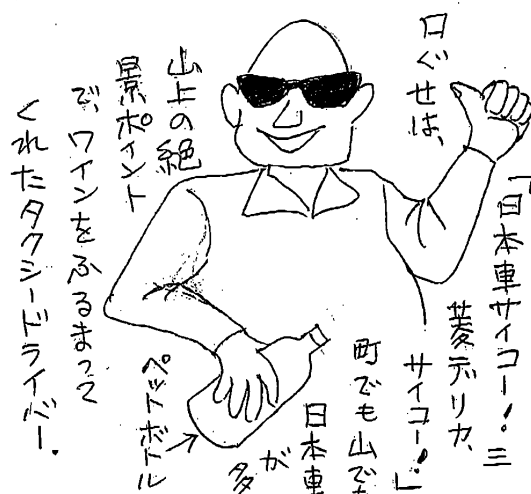 口ぐせは、
「日本車サイコー!三
菱デリカ、
サイコー!」
町でも山でも
日本車
が
多
山上の絶
景ポイント
で、ワインをふるまって
くれたタクシードライバー.
ペットボトル